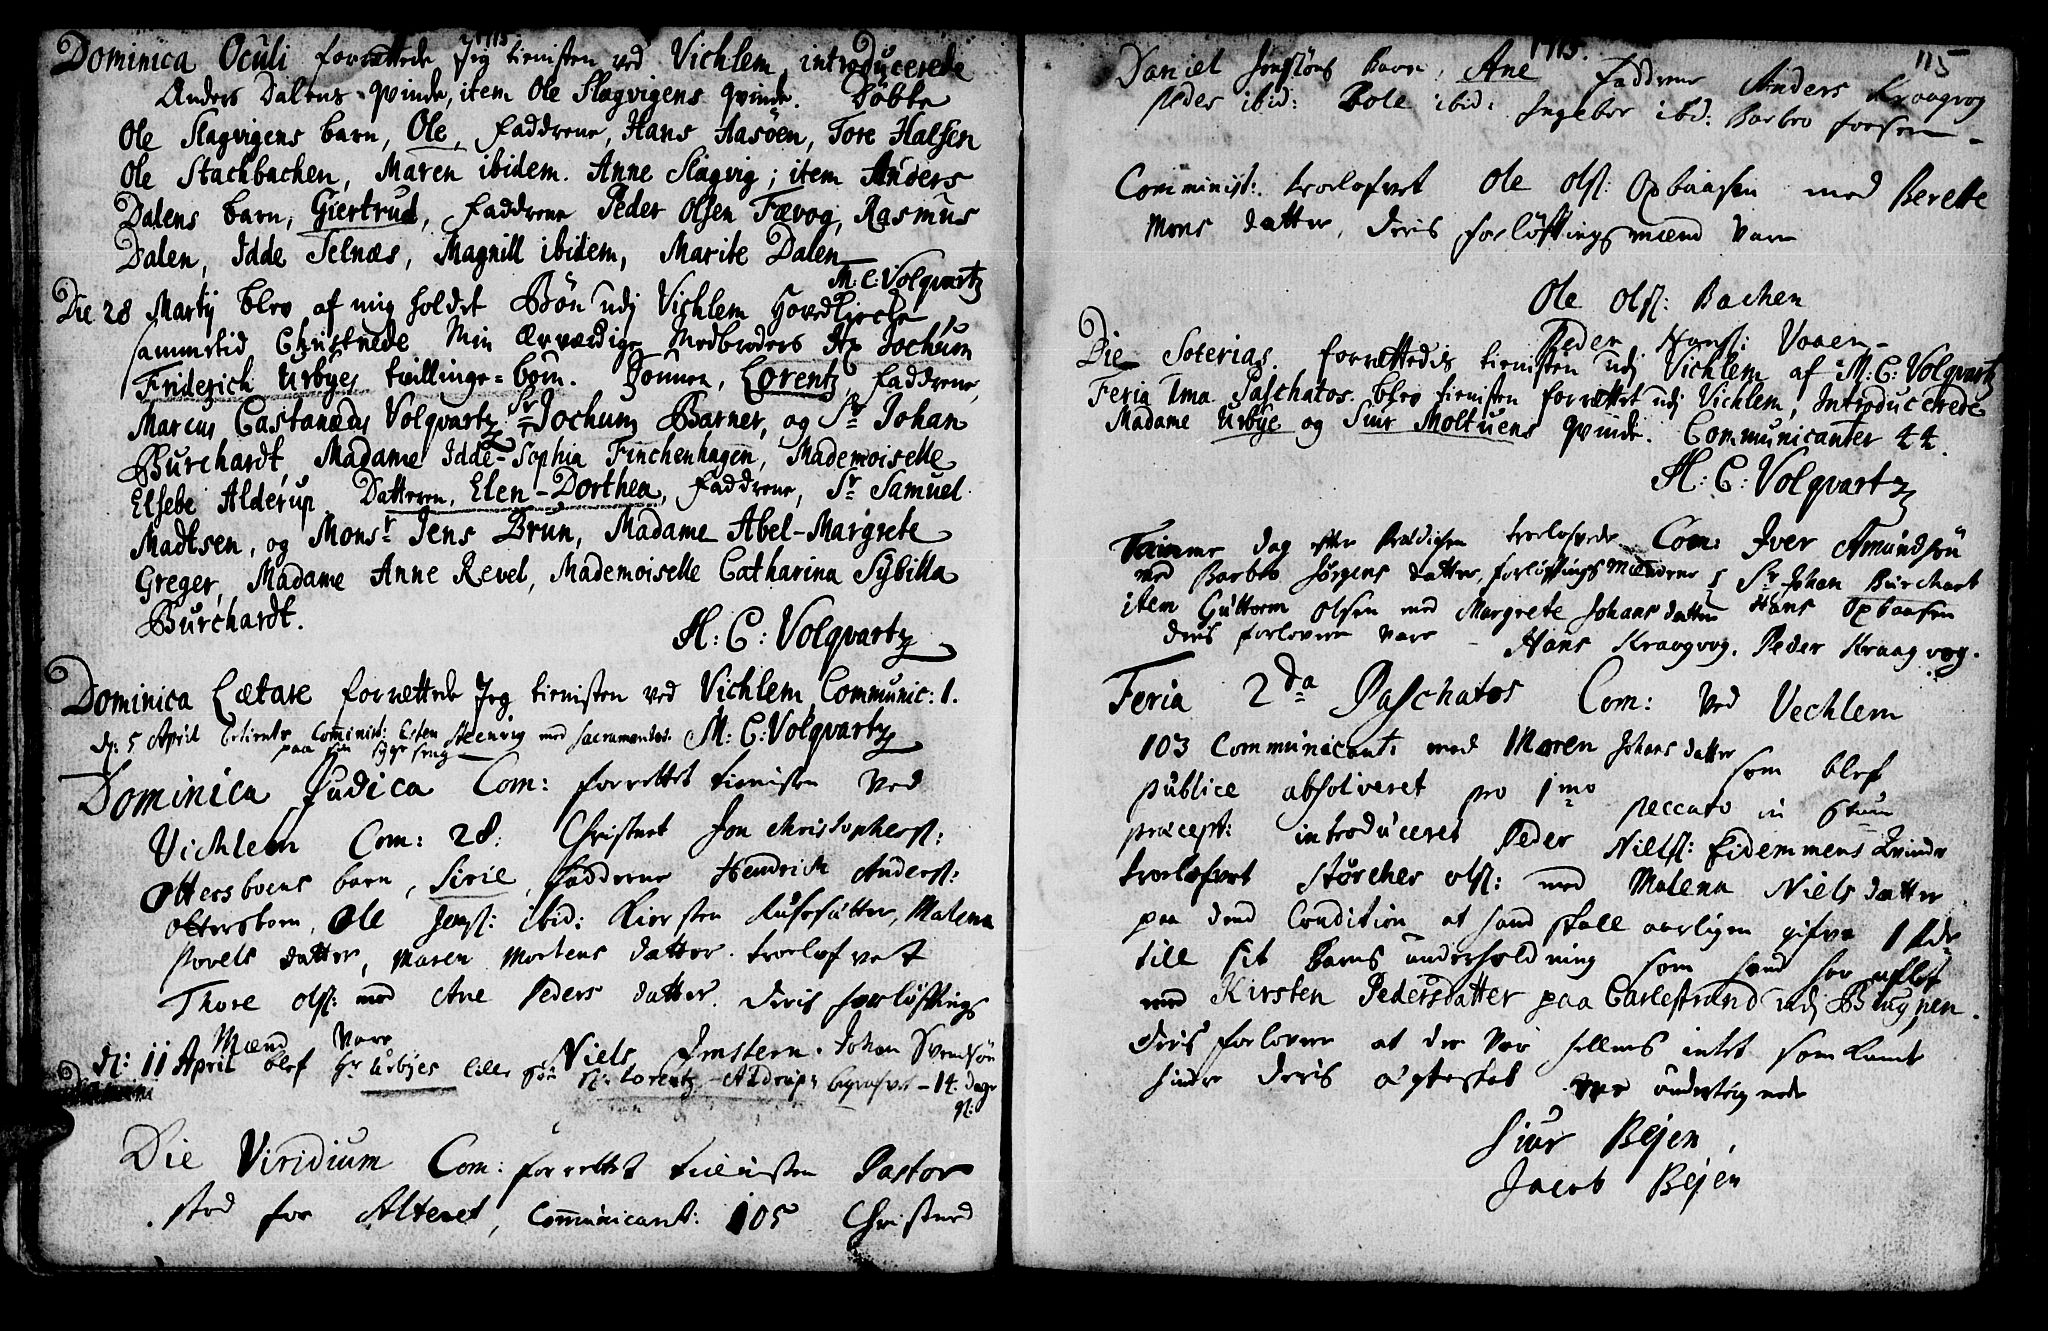 1715
Dominica Oculi forrættede Jeg tienisten ved Vichlem, introducerede
Anders Dalens qvinde, item Ole Slagvigens qvinde. Døbte
Ole Slagvigens barn, Ole, faddrene, Hans Aasøen, Tore Halsen
Ole Stachbachen, Maren ibidem. Anne Slagvig; item Anders
Dalens barn, Giertrud, faddrene Peder Olsen Fævog, Rasmus
Dalen, Idde Selnæs, Magnill ibidem, Marite Dalen
M: C: Volqvartz
Die 28 Martij blev af mig holdet Bøn udj Vichlem Hovedkirche,
sammetid Christnede Min ærværdige Medbroders Hr Jochum
Friderich Urbyes tvillinge-børn. Sønnen, Lorentz, faddrene,
Marcus Castanæus Volqvartz, Sr Jochum Barner, og Sr Johan
Burchardt, Madame Idde-Sophia Finchenhagen, Mademoiselle
Elsebe Alderup. Datteren, Elen-Dorthea, faddrene, Sr Samuel
Madtsen, og Monsr Jens Brun, Madame Abel-Margrete
Greger, Madame Anne Revel, Mademoiselle Catharina Sybilla
Burchardt.
H: C: Volqvartz
Dominica Lætare forrættede Jeg tienisten ved Vichlem, Communic: 1.
d: 5 April betiente Cominist: Esten Steenvig med Sacramentet. M: C: Volqvartz
paa sin syge seng
Dominica Judica Com: forrettet tienisten ved
Vichlem Com: 28. Christnet Jon Christophersl:
Ottersboens barn, Sirie, faddrene Hendrich Andersl:
Ottersboen, Ole Jensl: ibid: Kiersten Malena
Povels datter, Maren Mortens datter. troelofvet
Thore Olsl: med Ane Peders datter. deris forløftings
Mænd vare Niels Johan Svendsøn
d: 11 April blef Hr Urbyes lille søn Lorentz Alderup begrafvet - 14. dage
gl:
Die Viridium Com: forrettet tienisten Pastor
stod for Alteret, Com̅unicant: 105 Christned
1715.
115
Daniel Jenssøns Barn, Ane faddrene Anders Kraagvog
Peder ibid: Bole ibid: Ingebor ibid: Barbro forsen
Cominist: troelofvet Ole Olsl: Ophaugen med Berette
Mons datter, deris forløftingsmænd vare
Ole Olsl: Bachen
Peder Hansl: Vaaen
Die Soterias. forrættedis tienisten udj Vichlem af M: C: Volqvartz
Feria 1ma Paschatos. blev tienisten forrættet udj Vichlem, Introducerede
Madame Urbye og Siur Moltuens qvinde. Communicanter 44.
H: C: Volqvartz
Samme dag efter Prædichen troelofvede Com: Iver Amundsøn
med Barbro Jørgens datter, forløftings Mændene Sr Johan Burchart
item Guttorm Olsen med Margrete Johans datter Hans Ophaasen
deris forlovere vare - Hans Kraagvog. Peder Kraagvog.
Feria 2da Paschatos Com: ved Vechlem
103 Communicant: med Maren Johans datter som blef
publice absolveret pro 1mo peccato in 6tum
præcept: introduceret Peder Nielsl: Eidemmens Kvinde
troelofvet Størcher Olsl: med Malena Niels datter
paa dend Condition at hand skall aarligen gifve 1 Rdr
till sit Barns underholdning som hand har aflet
med Kirsten Pedersdatter paa Carlestrand udj Biugnen.
deris forlovere at der var hellers intet som kunde
hindre deris ægteskab vare undertegnede
Siur Bejen
Jacob Bejen